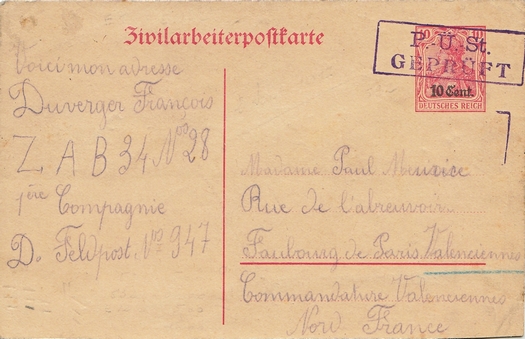 Zivilarbeiterpostkarte
10 10
P. Ü. St.
GEPRÜFT
10 Cent.
DEUTSCHES REICH
Voici mon adresse
Duverger François
Z A B 34 Nos 28
1ère Compagnie
D. Feldpost Nos 947
Madame Paul Meurice
Rue de l'abreuvoir
Faubourg de Paris Valenciennes
Commandature Valenciennes
Nord France